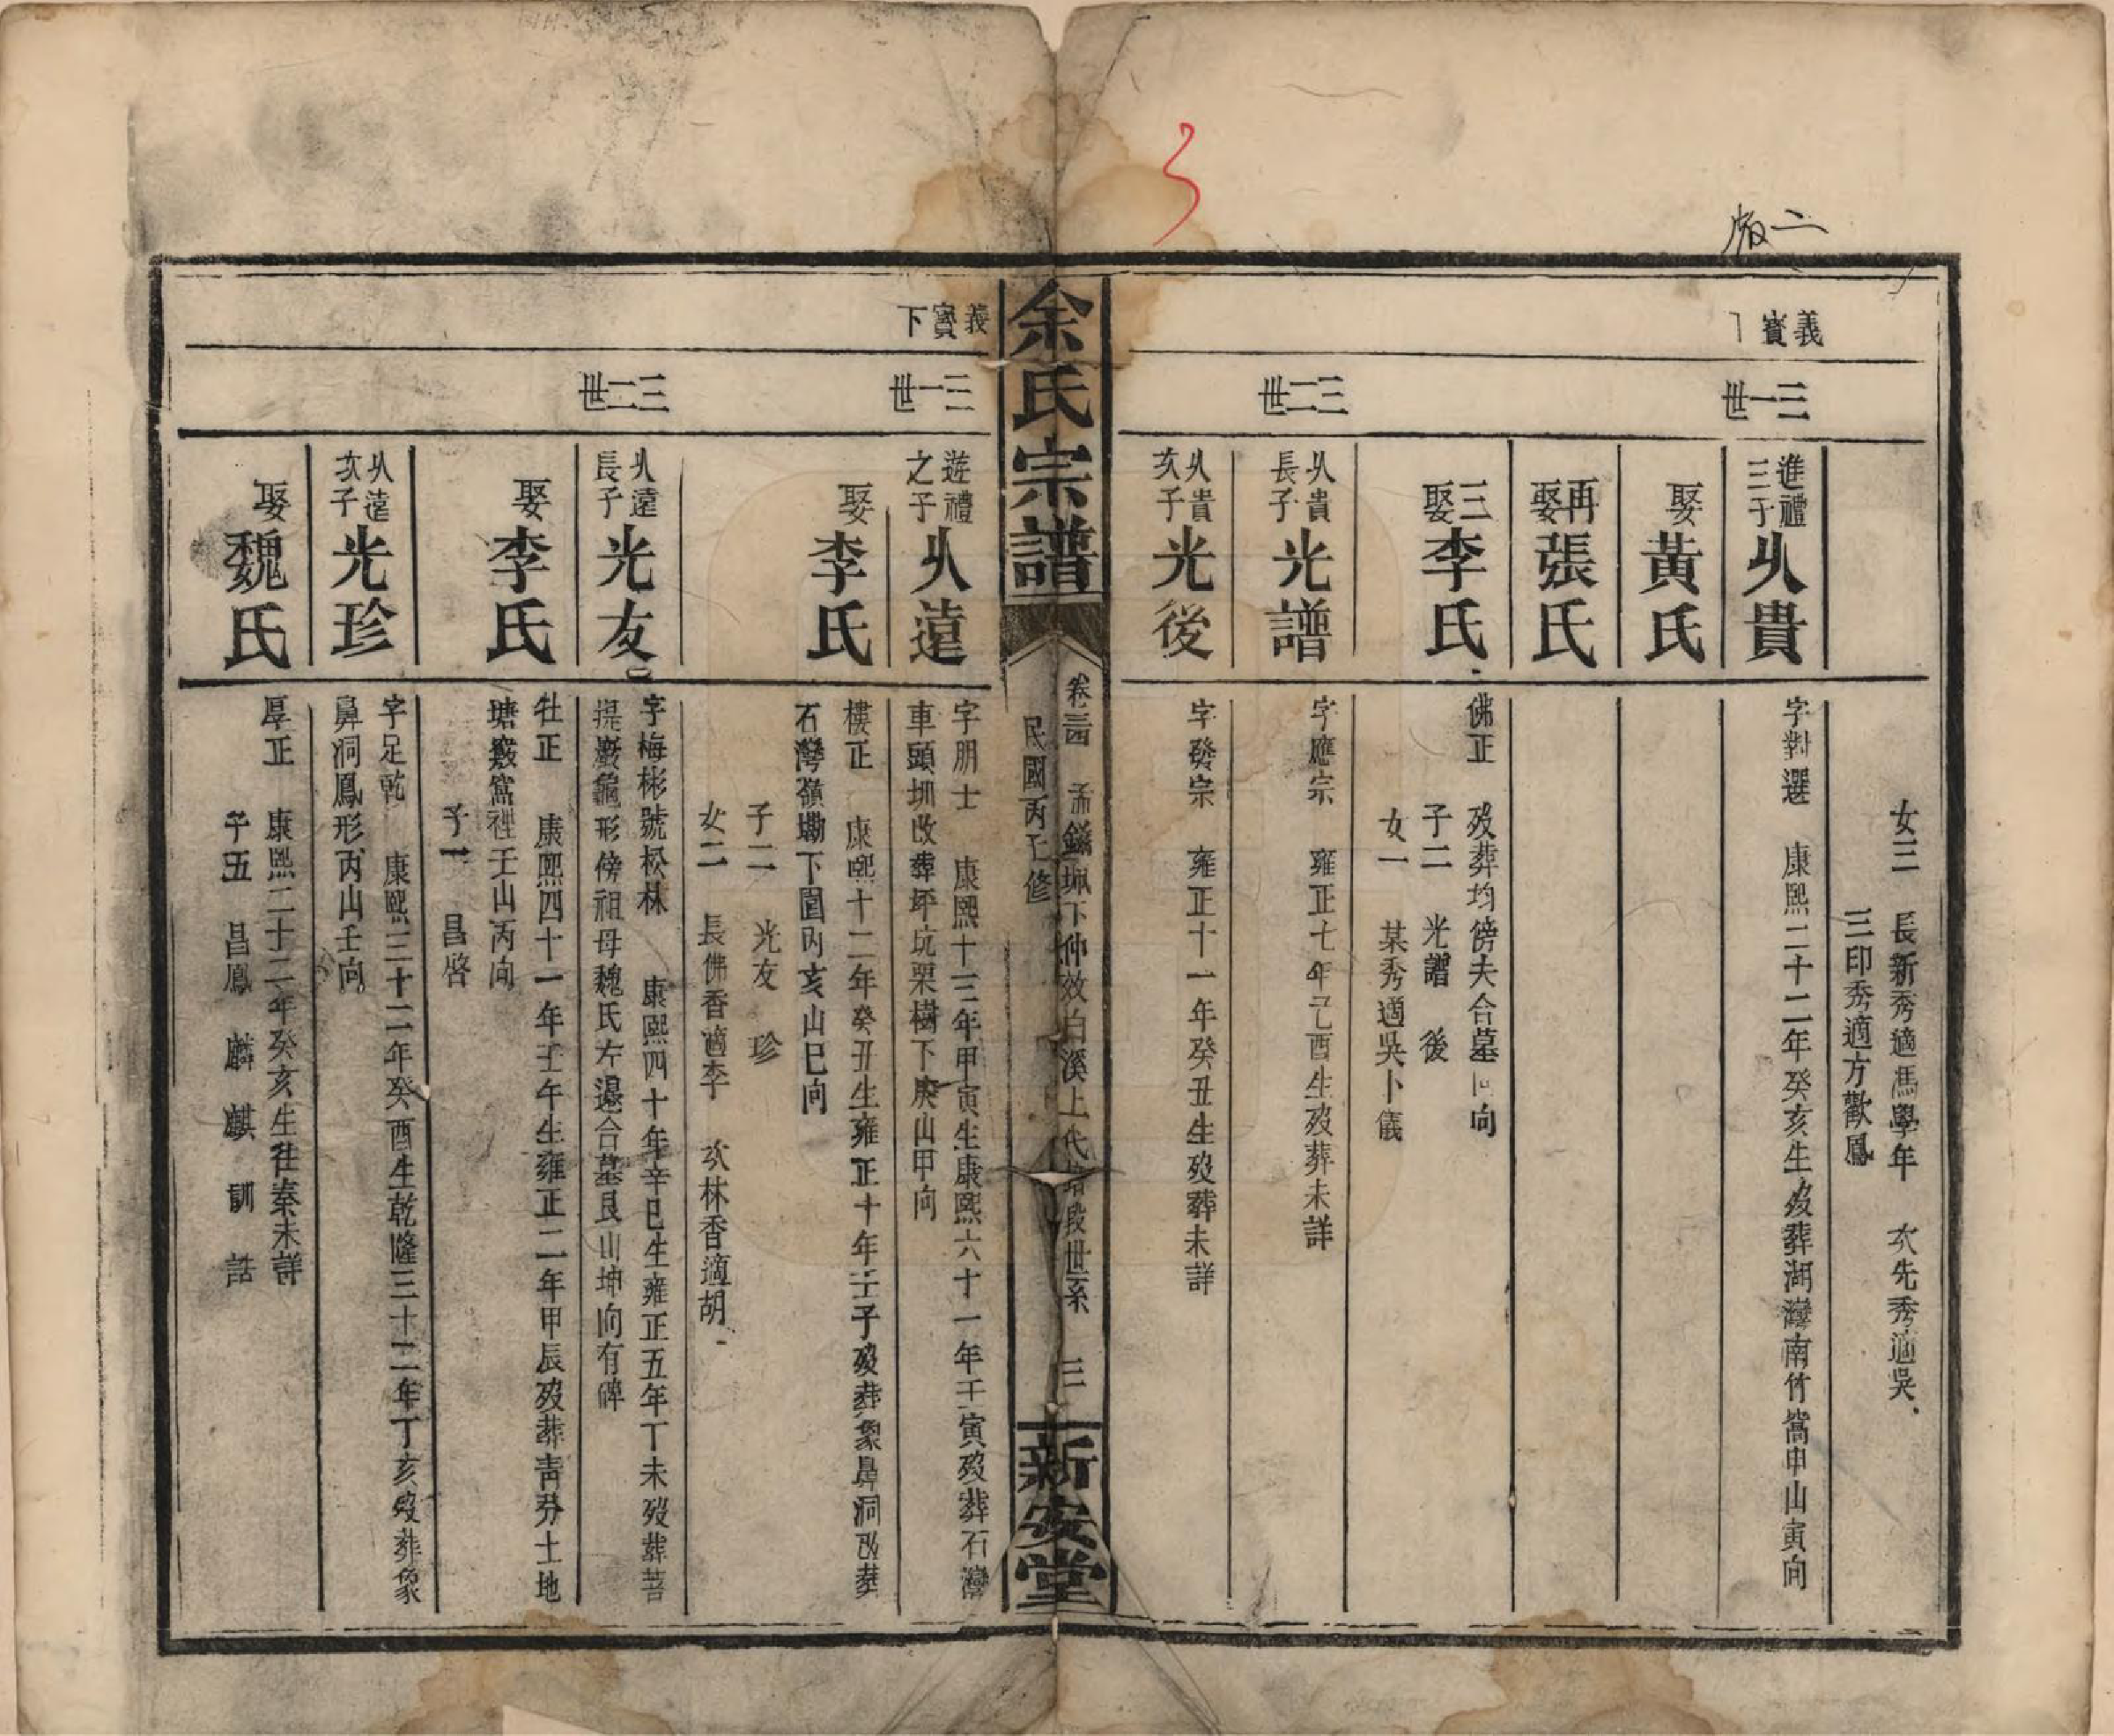 版二
義寶下
三一世
三二世
女三　長新秀適馮學年　次先秀適吳
三印秀適方歡鳳
進禮三子
㠯貴
字對選　康熙二十二年癸亥生歿葬湖灣南竹窩申山寅向
娶黃氏
再娶張氏
三娶李氏
佛正　歿葬均傍夫合墓　向
子二　光譜　後
女一　某秀適吳卜儀
㠯貴長子
光譜
字應宗　雍正七年己酉生歿葬未詳
㠯貴次子
光後
字發宗　雍正十一年癸丑生歿葬未詳
余氏宗譜
民國丙子修
新安堂
義寶下
三一世
三二世
遊禮之子
㠯遠
字朋士　康熙十三年甲寅生康熙六十一年壬寅歿葬石灣
車頭圳改葬坪坑栗樹下庚山甲向
娶李氏
樓正　康熙十二年癸丑生雍正十年壬子歿葬象鼻洞改葬
石灣嶺塝下園內亥山巳向
子二　光友　珍
女二　長佛香適李　次林香適胡
㠯遠長子
光友
字梅彬號松林　康熙四十年辛巳生雍正五年丁未歿葬菩
提巖龜形傍祖母魏氏左邊合墓艮山坤向有碑
娶李氏
牡正　康熙四十一年壬午生雍正二年甲辰歿葬青　土地
塘　窩裡壬山丙向
子一　昌啓
㠯遠次子
光珍
字足乾　康熙三十二年癸酉生乾隆三十二年丁亥歿葬象
鼻洞鳳形丙山壬向
娶魏氏
厚正　康熙二十二年癸亥生往秦未詳
子五　昌鳳　麟　麒　訓　話